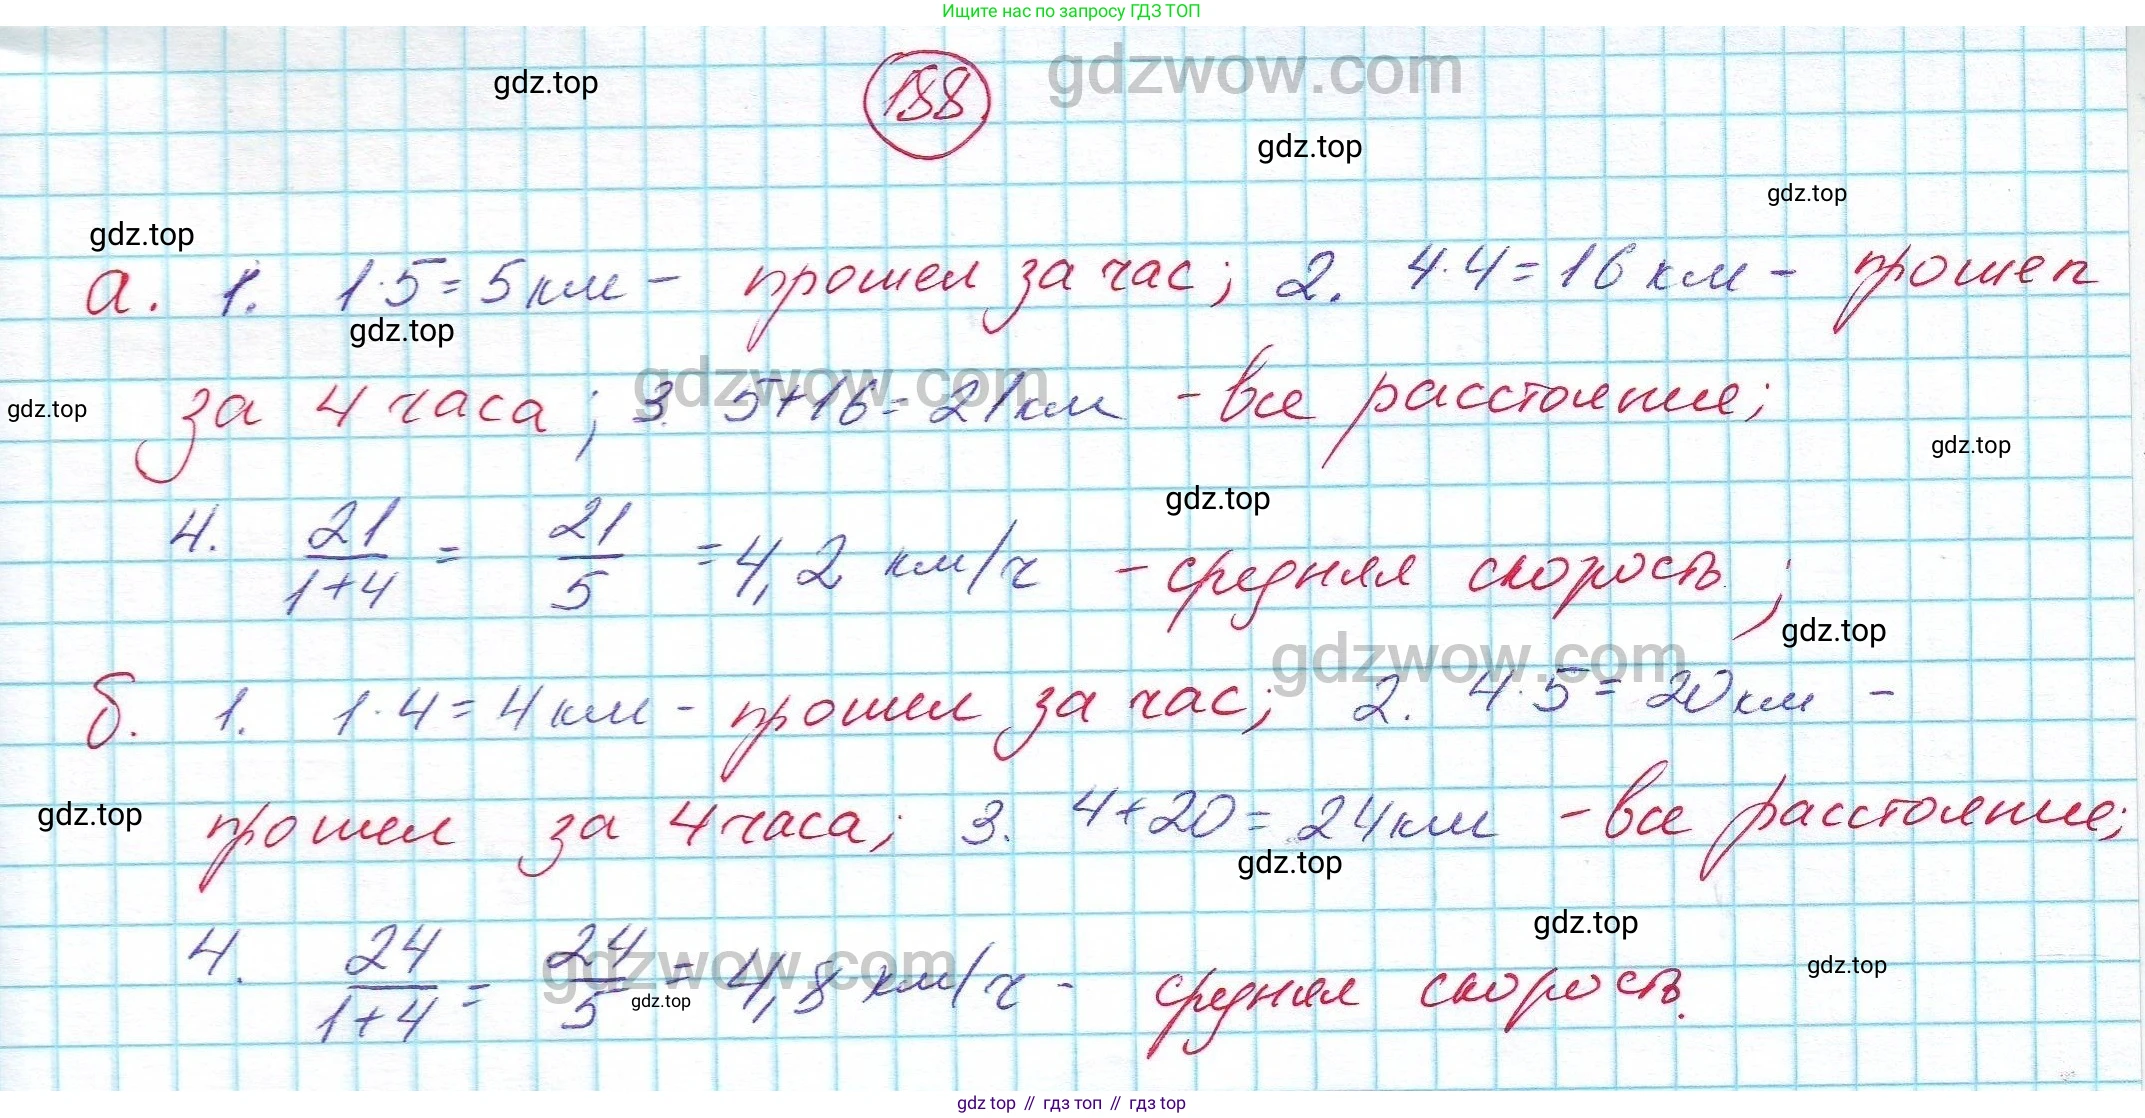 Ищите нас по запросу ГДЗ ТОП
gdzwow.com
gdz.top
188
gdz.top
gdz.top
gdz.top
а. 1. 1·5=5км - прошел за час; 2. 4·4=16км - прошел
gdz.top
gdzwow.com
за 4 часа; 3. 5+16=21км - все расстояние;
gdz.top
gdz.top
gdz.top
4. 21/1+4 = 21/5 = 4,2 км/ч - средняя скорость;
gdz.top
gdzwow.com
б. 1. 1·4=4км - прошел за час; 2. 4·5=20км -
gdz.top
прошел за 4 часа; 3. 4+20=24км - все расстояние;
gdz.top
gdz.top
gdzwow.com
gdz.top
4. 24/1+4 = 24/5 = 4,8 км/ч - средняя скорость.
gdz.top
gdz top // гдз топ // gdz top